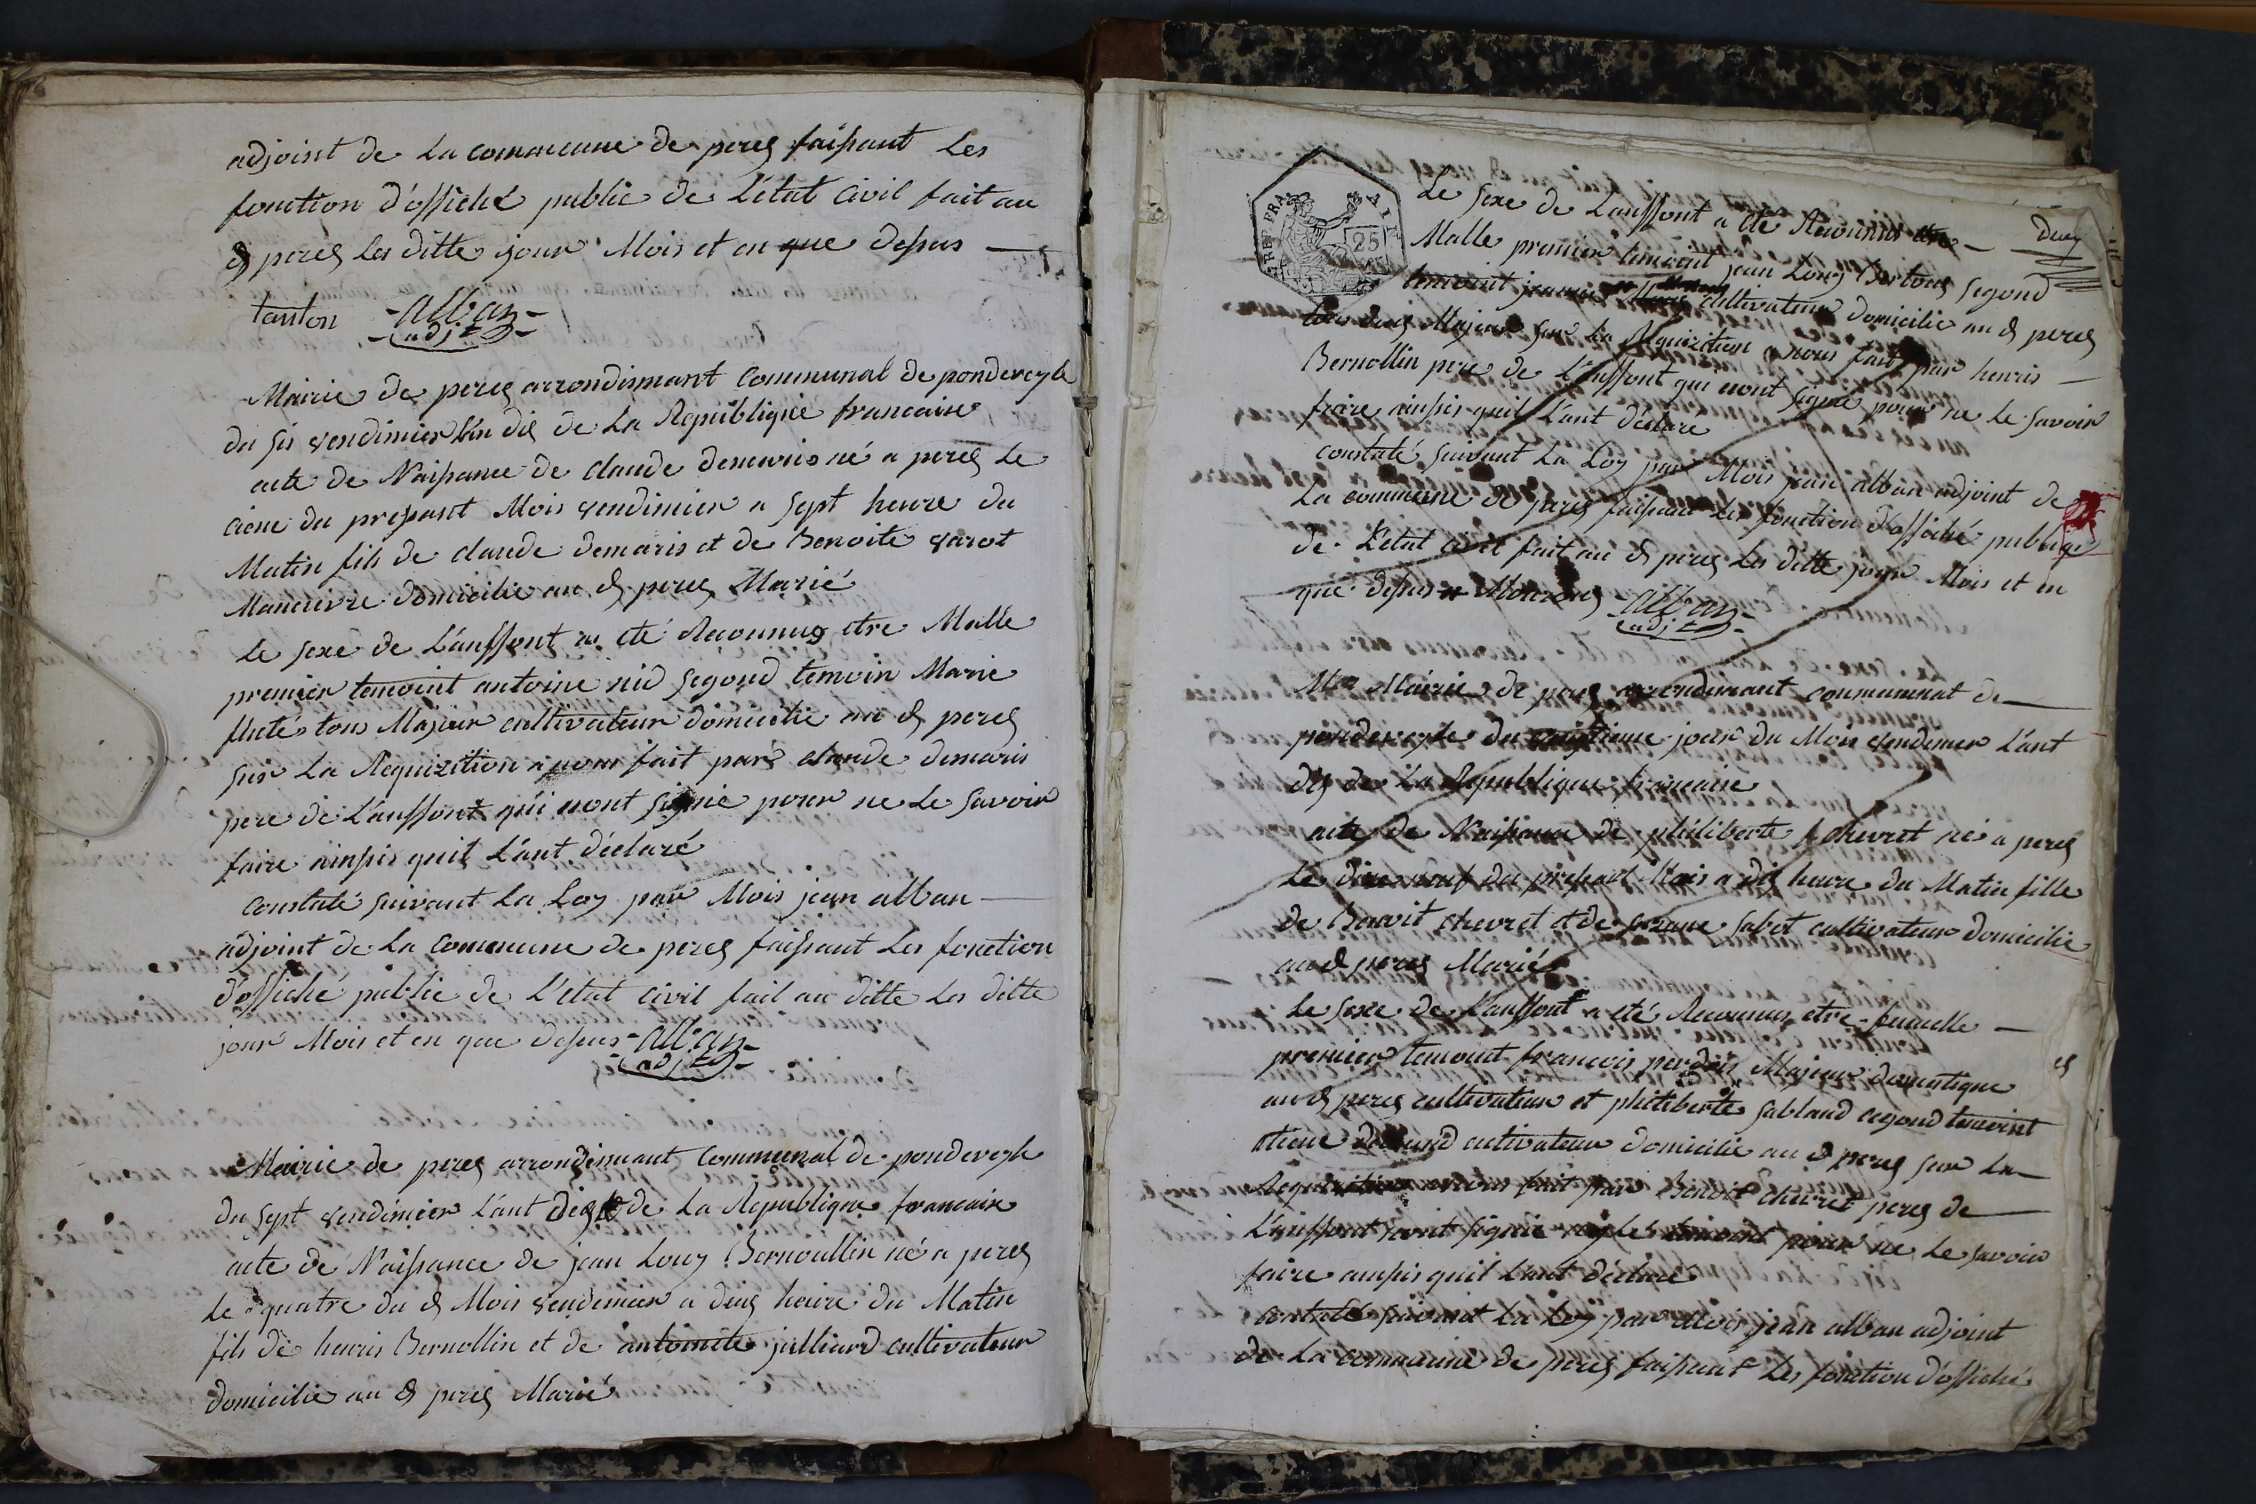 adjoint de La commune de perez faisant Les
fonction d'offiché public de L'état Civil fait au
d perez Les ditte jour Mois et en que desus
tanton alban
adjt
Mairie de perez arrondismant Communal de pondeveyle
du sis vendimier L'an dis de La Republique francaine
acte de Naissance de claude demaris né a perez Le
ciene du present Mois vendimier a sept heure du
Matin fils de claude demaris et de Benoite varot
Maneuvre domicilie au d perez Marié
Le sexe de L'anffont a eté Reconnus etre Malle
premier temoint antoine nid segond temoin Marie
tous Majeur cultivateur domicilie au d perez
sur La Requizition a nous fait par claude demaris
pere de L'anffont qui nont signie pour ne Le savoir
faire ainsis quil L'ant déclaré
Constaté suivant La Loy par Mois jean alban
adjoint de La Commune de perez faissant Les fonction
d'offiché public de L'etat Civil fait au ditte Les ditte
jour Mois et en que desus alban
adjt
Mairie de perez arrondismant Communal de pondeveyle
du sept vendimier L'ant dis de La Republique francaine
acte de Naissance de jean Louy Bernoullin né a perez
Le quatre du d Mois vendemier a deus heure du Matin
fils de henris Bernollin et de antoinette julliard cultivateur
domicilie au d perez Marié
REP. FRA.
25
Le sexe de L'anffont a eté Reconnus etre
Malle premier temoint jean Louy Bertous segond
temoint cultivateur domicilie au d perez
tous deus Majeur sur La Requizition a nous fait par henris
Bernollin pere de L'anffont qui nont signe pour ne Le savoir
faire ainsis quil L'ant déclare
constaté suivant La Loy par Mois jean alban adjoint de
La commune de perez faissant Les fonction d'offiché publiq
de L'etat civil fait au d perez Les ditte jour Mois et en
que desus alban
adjt
Mairie de perez arrondimant communnal de
pondeveyle du jour du Mois vendemier L'ant
dis de La Republique francaine
acte de Naissance de philiberte chevret né a perez
Le dixe neuf du present Mois a dis heure du Matin fille
de Benoit chevret et de sabot cultivateur domicilie
au d perez Marié
Le sexe de L'anffont a eté Reconnus etre femelle
premier temoint francois perdris Majeur domestique
au d perez cultivateur et philiberte sabland segond temoint
cultivateur domicilie au d perez sur La
Requizition a nous fait par Benoit chevret perez de
L'anffont pour ne Le savoir
faire ainsis quil L'ant déclare
constaté suivant La Loy par Mois jean alban adjoint
de La commune de perez faissant Les fonction d'offiché